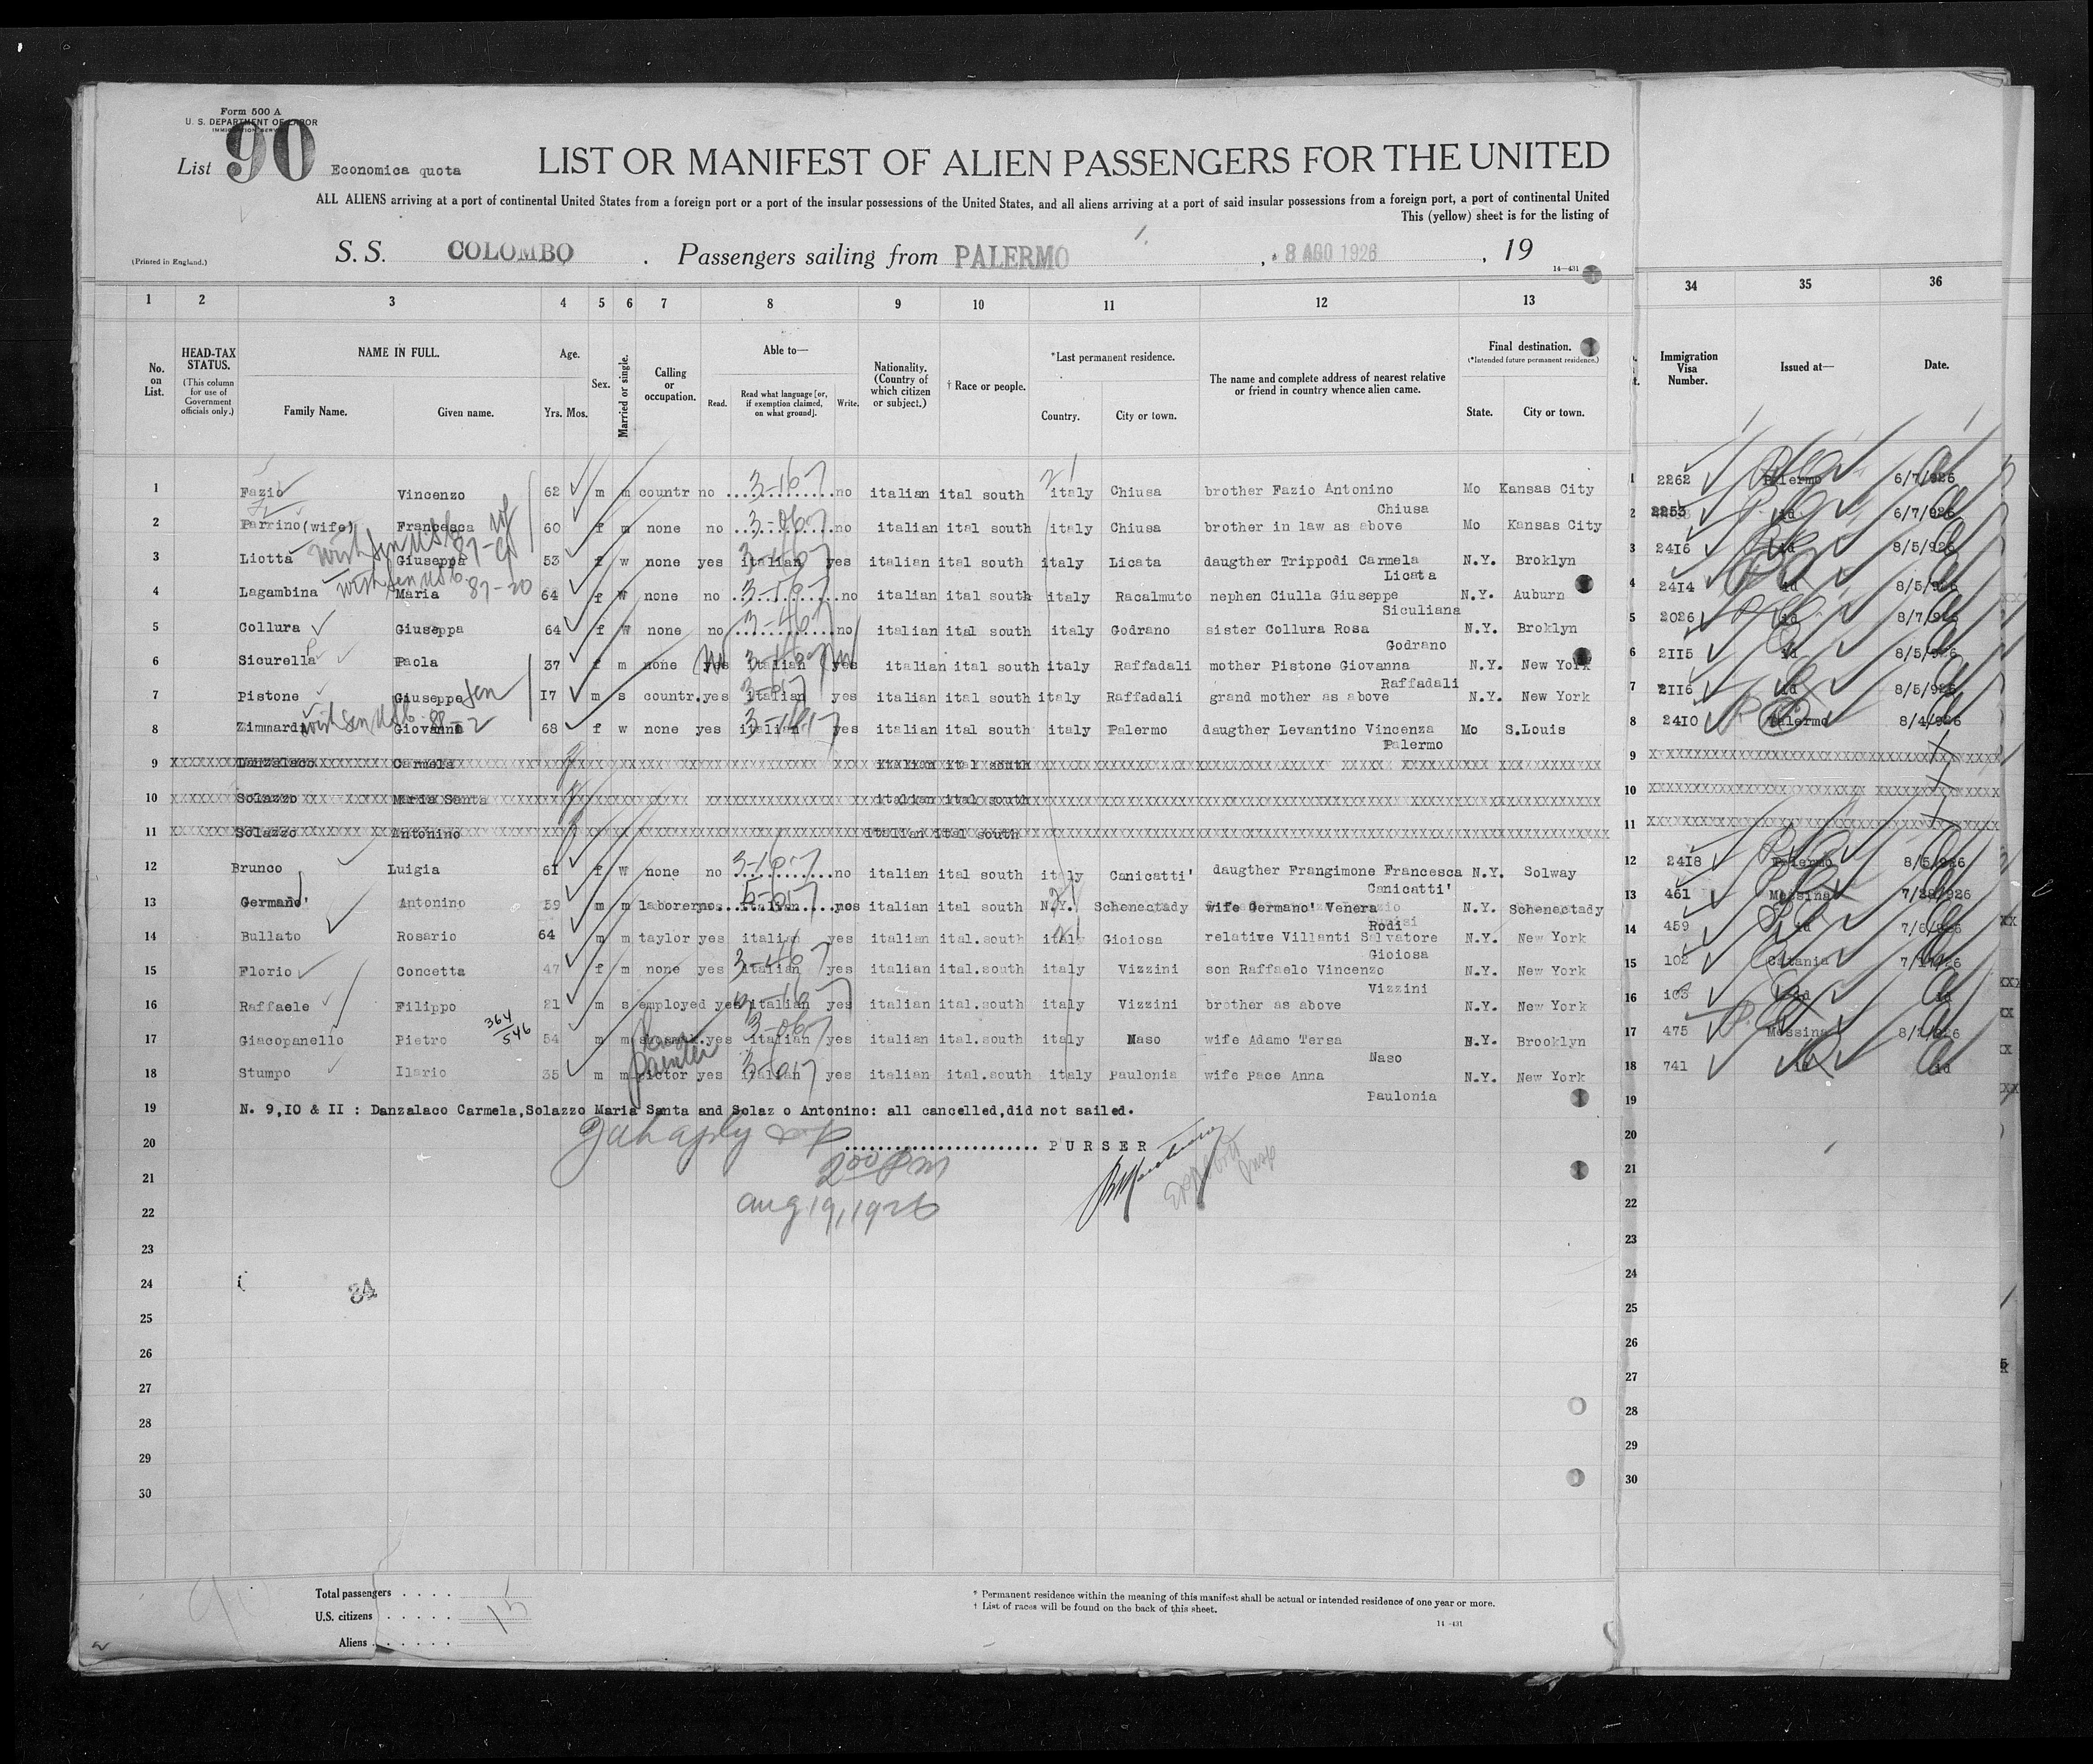 Form 500 A
U. S. DEPARTMENT OF LABOR
IMMIGRATION SERVICE
List 90 Economica quota
LIST OR MANIFEST OF ALIEN PASSENGERS FOR THE UNITED
ALL ALIENS arriving at a port of continental United States from a foreign port or a port of the insular possessions of the United States, and all aliens arriving at a port of said insular possessions from a foreign port, a port of continental United
This (yellow) sheet is for the listing of
(Printed in England.)
S. S. COLOMBO . Passengers sailing from PALERMO , 8 AGO 1926 , 19
14—431
1 2 3 4 5 6 7 8 9 10 11 12 13 34 35 36
No. on List.
HEAD-TAX STATUS.
(This column for use of Government officials only.)
NAME IN FULL.
Family Name. Given name.
Age.
Yrs. Mos.
Sex.
Married or single.
Calling or occupation.
Able to—
Read. Read what language [or, if exemption claimed, on what ground]. Write.
Nationality. (Country of which citizen or subject.)
† Race or people.
*Last permanent residence.
Country. City or town.
The name and complete address of nearest relative or friend in country whence alien came.
Final destination.
(*Intended future permanent residence.)
State. City or town.
Immigration Visa Number.
Issued at—
Date.
1 Fazio Vincenzo 62 m m countr no no italian ital south italy Chiusa brother Fazio Antonino Mo Kansas City 1 2262 Palermo 6/7/926
Chiusa
2 Parrino(wife) Francesca 60 f m none no no italian ital south italy Chiusa brother in law as above Mo Kansas City 2 2253 id 6/7/926
3 Liotta Giuseppa 53 f w none yes italian yes italian ital south italy Licata daugther Trippodi Carmela N.Y. Broklyn 3 2416 id 8/5/926
Licata
4 Lagambina Maria 87-20 64 f W none no no italian ital south italy Racalmuto nephen Ciulla Giuseppe N.Y. Auburn 4 2414 id 8/5/926
Siculiana
5 Collura Giuseppa 64 f W none no no italian ital south italy Godrano sister Collura Rosa N.Y. Broklyn 5 2026 id 8/7/926
Godrano
6 Sicurella Paola 37 f m none yes italian yes italian ital south italy Raffadali mother Pistone Giovanna N.Y. New York 6 2115 id 8/5/926
Raffadali
7 Pistone Giuseppe 17 m s countr.yes italian yes italian ital south italy Raffadali grand mother as above N.Y. New York 7 2116 id 8/5/926
8 Zimmardi Giovanna 68 f w none yes italian yes italian ital south italy Palermo daugther Levantino Vincenza Mo S.Louis 8 2410 Palermo 8/4/926
Palermo
9 Danzalaco Carmela italian ital south 9
10 Solazzo Maria Santa italian ital south 10
11 Solazzo Antonino italian ital south 11
12 Brunco Luigia 61 f w none no no italian ital south italy Canicatti' daugther Frangimone Francesca N.Y. Solway 12 2418 Palermo 8/5/926
Canicatti'
13 Germano' Antonino 59 m m laborer italian italian ital south N.Y. Schenectady wife Germano' Venera N.Y. Schenectady 13 461 Messina 7/28/926
Rodi
14 Bullato Rosario 64 m m taylor yes italian yes italian ital.south italy Gioiosa relative Villanti Salvatore N.Y. New York 14 459 id 7/6/926
Gioiosa
15 Florio Concetta 47 f m none yes italian yes italian ital.south italy Vizzini son Raffaelo Vincenzo N.Y. New York 15 102 Catania
Vizzini
16 Raffaele Filippo 21 m s employed yes italian yes italian ital.south italy Vizzini brother as above N.Y. New York 16 103 id id
17 Giacopanello Pietro 364/546 54 m m yes italian yes italian ital.south italy Naso wife Adamo Tersa N.Y. Brooklyn 17 475 Messina 8/2/926
Naso
18 Stumpo Ilario 35 m m pictor painter yes italian yes italian ital.south italy Paulonia wife Pace Anna N.Y. New York 18 741 id id
Paulonia
19 N. 9,10 & 11 : Danzalaco Carmela,Solazzo Maria Santa and Solaz o Antonino: all cancelled,did not sailed. 19
20 PURSER 20
21 2 00 pm 21
22 aug 19, 1926 22
23 23
24 24
25 25
26 26
27 27
28 28
29 29
30 30
Total passengers
U.S. citizens 15
Aliens
* Permanent residence within the meaning of this manifest shall be actual or intended residence of one year or more.
† List of races will be found on the back of this sheet.
14-431